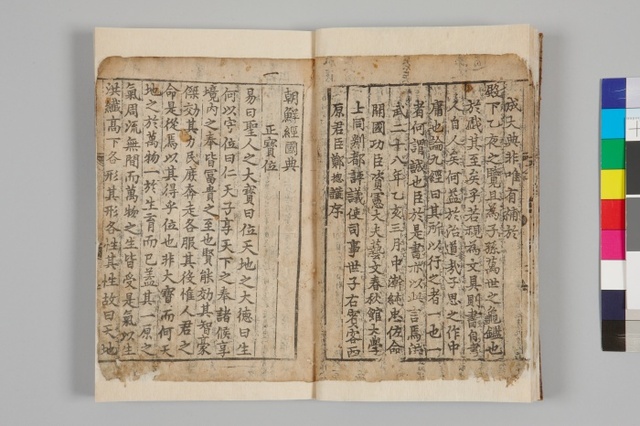 成大典非唯有補於
殿下乙夜之覽且爲子孫萬世之龜鑑也
於戲其至矣乎若視爲文具則書自書
人自人矣何益於治道哉子思之作中
庸也論九經曰其所以行之者一也一
者何謂誠也臣於是書亦以此言焉洪
武二十八年乙亥三月中澣純忠佐命
開國功臣資憲大夫藝文春秋館大學
士同新都評議使司事世子右賓客西
原君臣鄭摠謹序
朝鮮經國典
正寶位
易曰聖人之大寶曰位天地之大德曰生
何以守位曰仁天子享天下之奉諸侯享
境內之奉皆富貴之至也賢能效其智豪
傑效其力民庶奔走各服其役惟人君之
命是從焉以其得乎位也非大寶而何天
地之於萬物一於生育而已蓋其一原之
氣周流無間而萬物之生皆受是氣以生
洪纖高下各形其形各性其性故曰天地